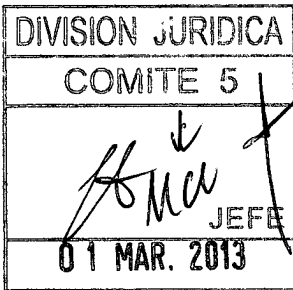 DIVISION JURIDICA
COMITE 5
JEFE
01 MAR. 2013